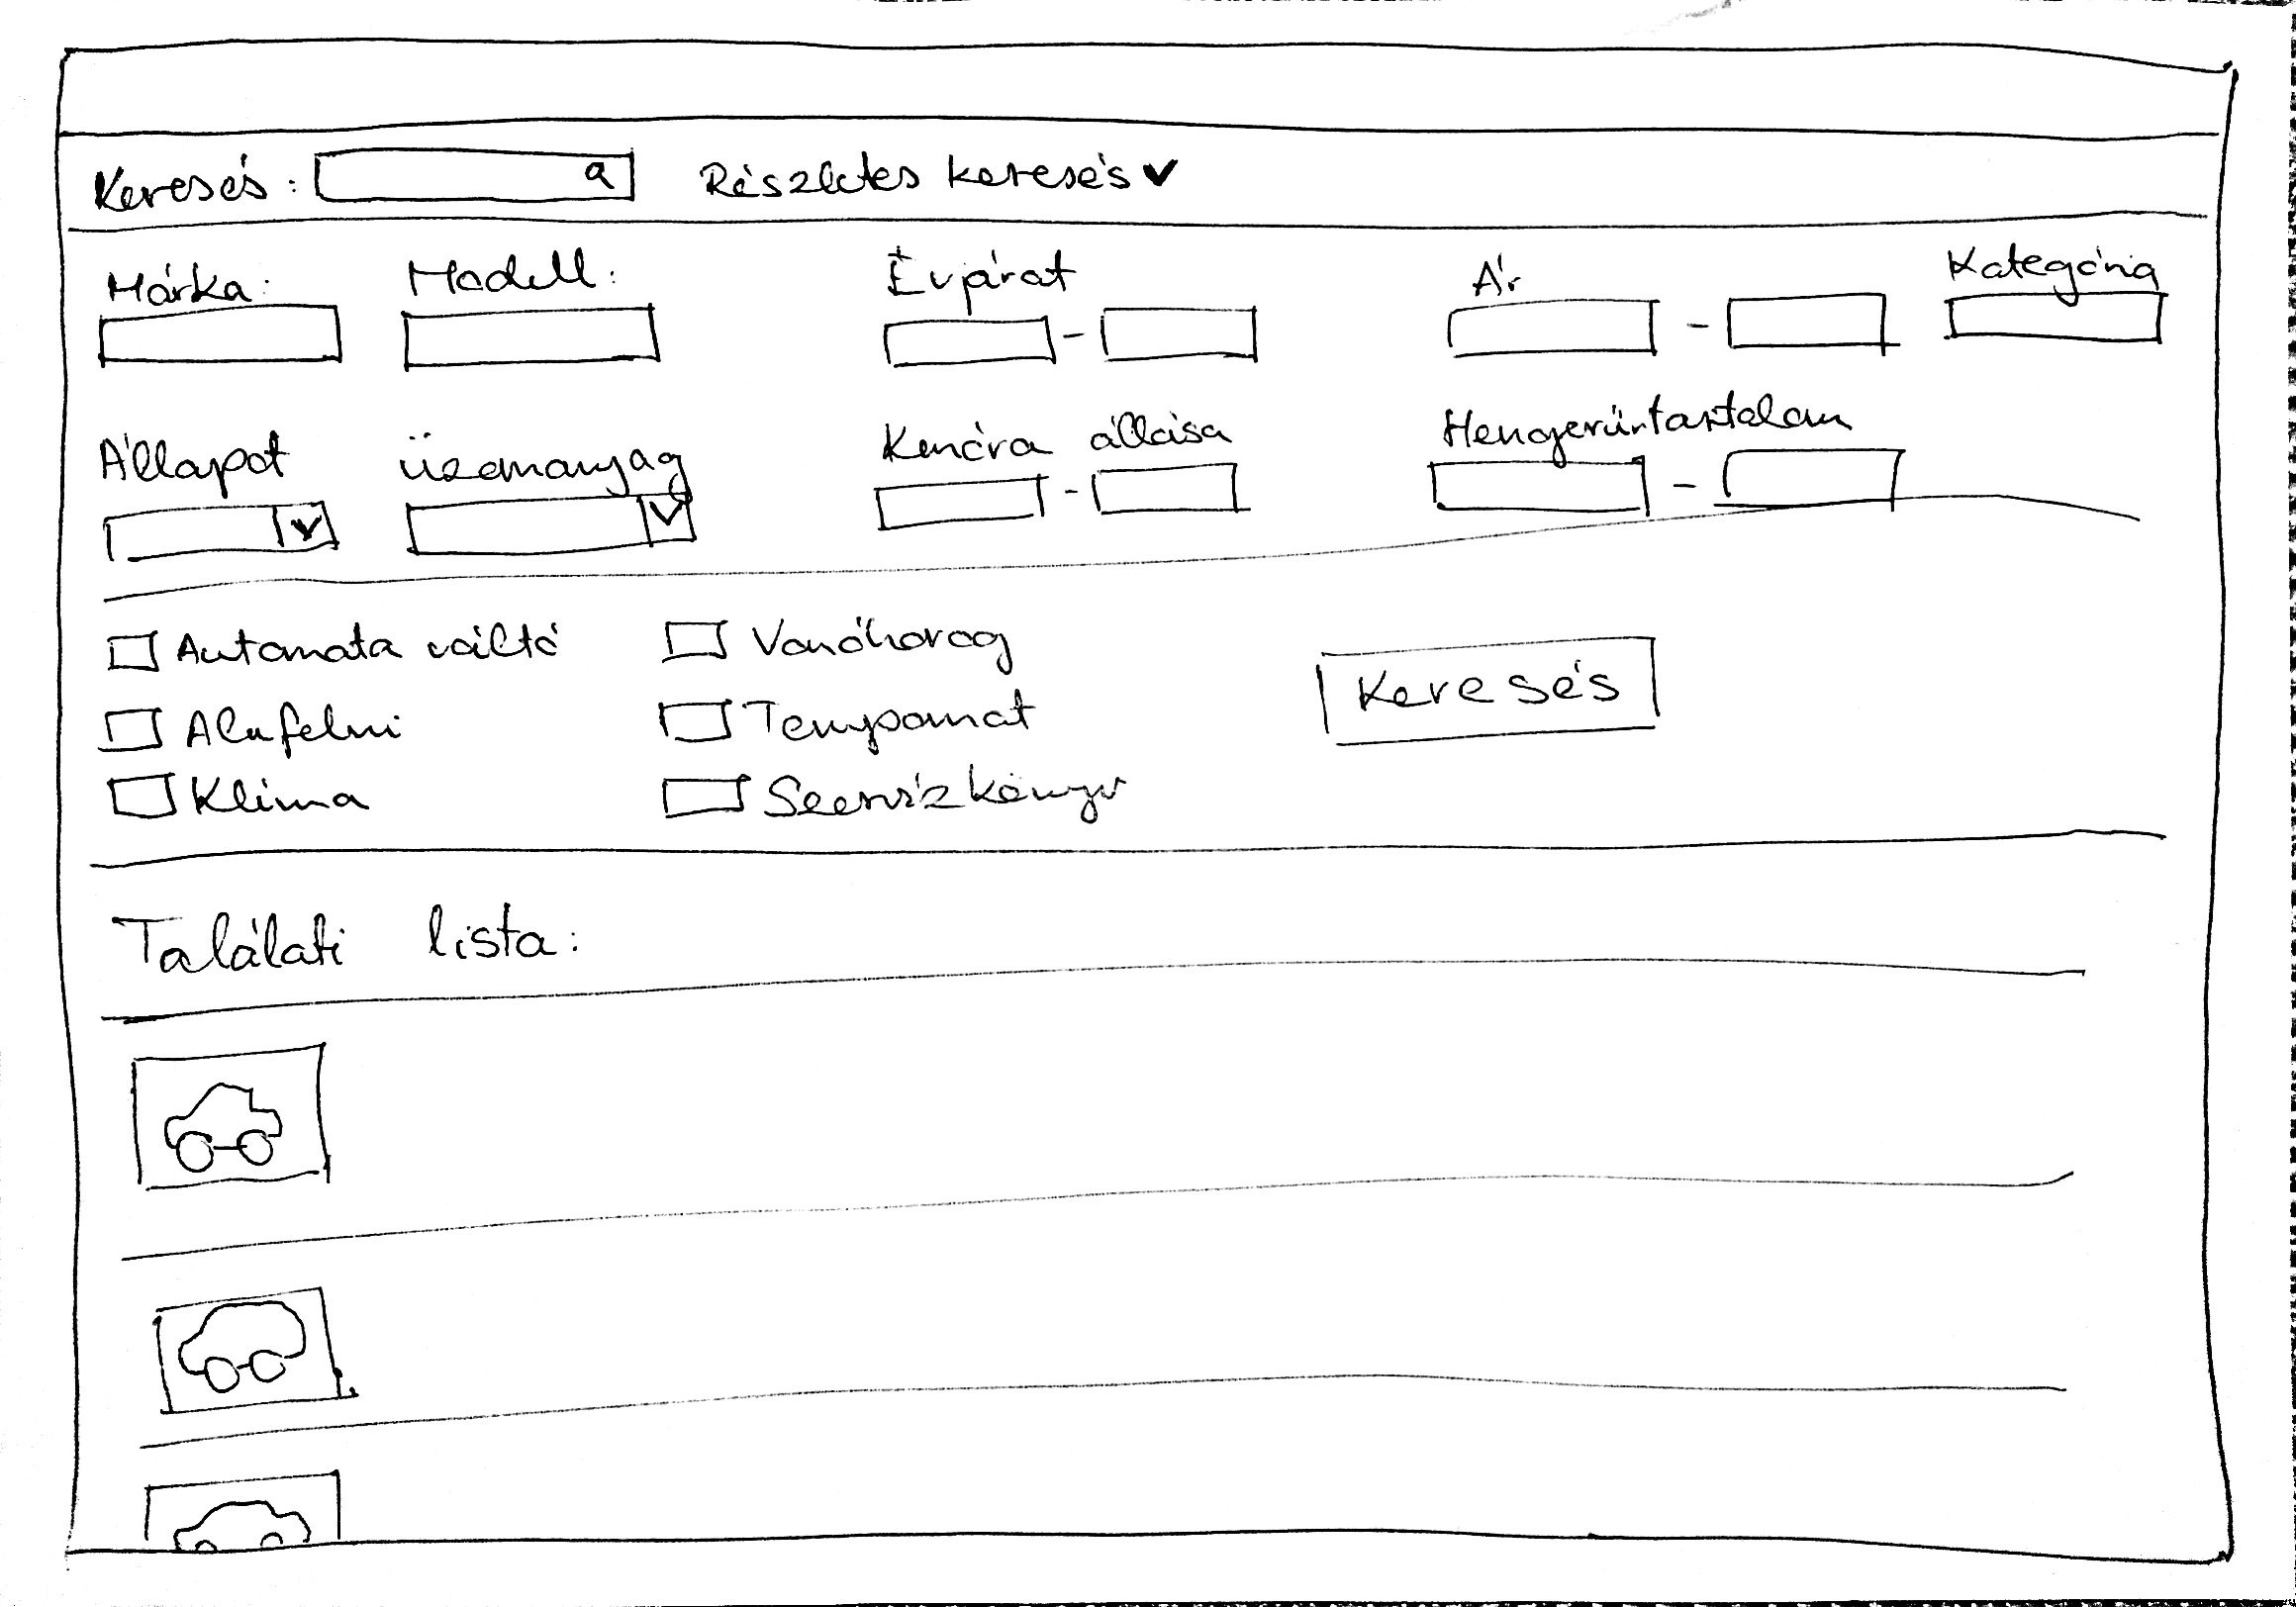 Keresés:
Részletes keresés
Márka:
Modell:
Évjárat
Ár
Kategória
Állapot
üzemanyag
Km óra állása
Hengerűrtartalom
Automata váltó
Vonóhorog
Alufelni
Tempomat
Klíma
Szervízkönyv
Keresés
Találati lista: